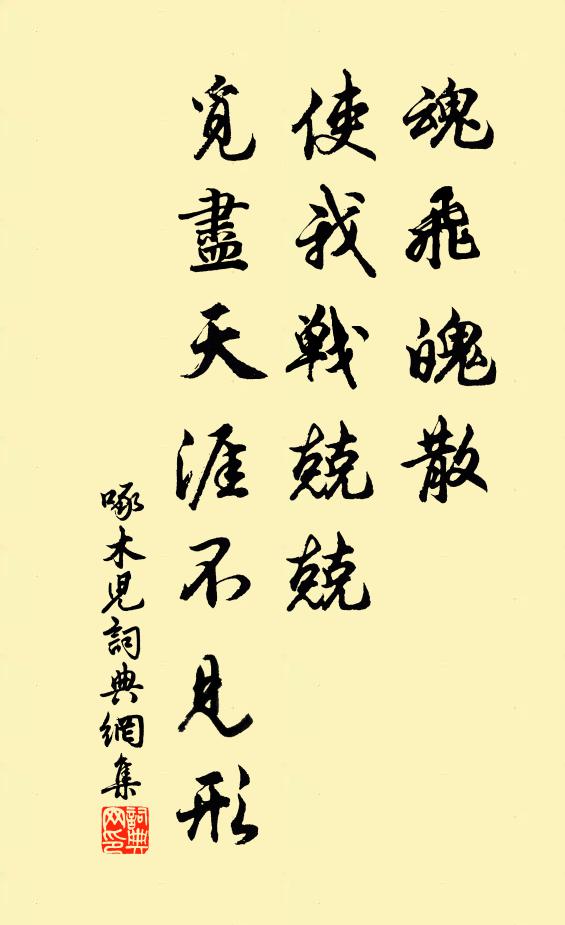 魂飛魄散
使我戰兢兢
覓盡天涯不見形
啄木兒詞典網集
詞典网印